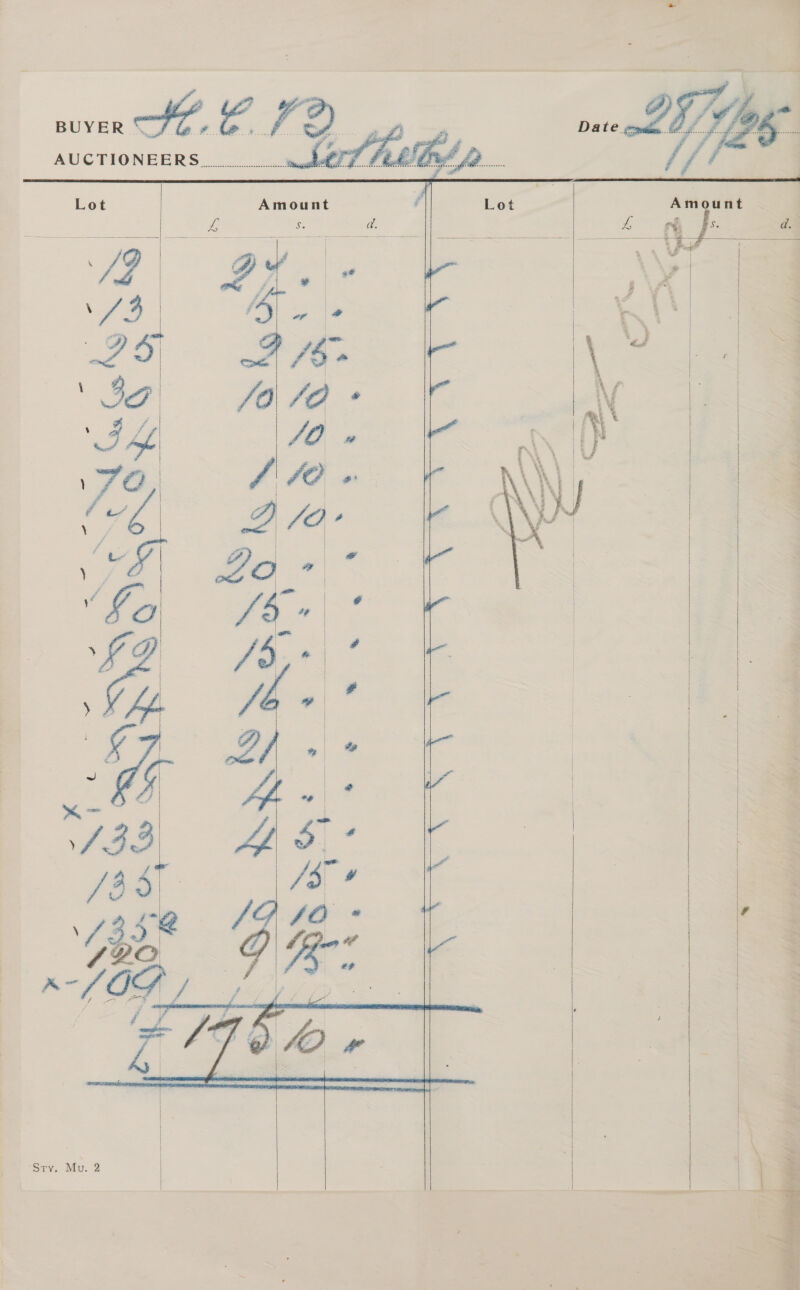 BUYER H. C. B Date 28/7/25
AUCTIONEERS Sothebys
Lot Amount Lot Amount
£ s. d. £ s. d.
12 24 . "
13 5 " "
25 2 15 "
30 10 10 "
34 10 "
70 1 10 "
76 2 10 "
78 20 " "
80 15 " "
82 15 " "
84 16 " "
87 21 " "
88 4 " "
x- 133 4 5 "
135 15 "
135a 19 10 "
120 9
x- 109 15 "
£ 175 10 "
All at
Sty. Mu. 2